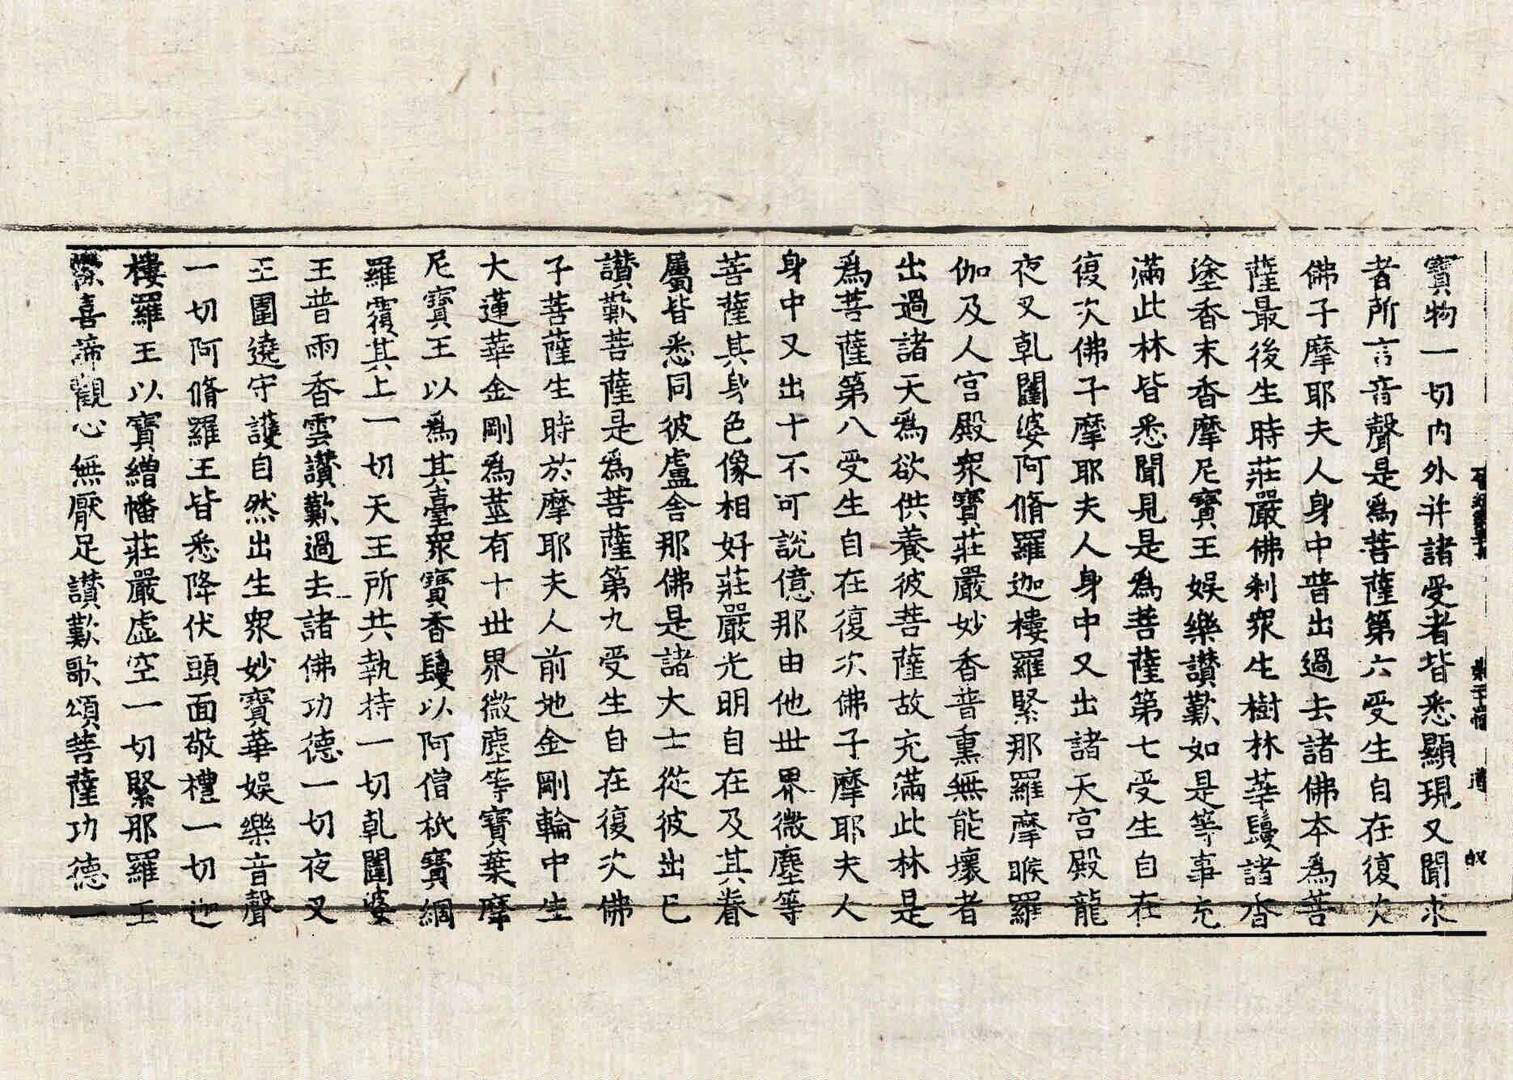 寶物一切內外許諸受者皆悉顯現又聞求
者所言音聲是爲菩薩第六受生自在復次
佛子摩耶夫人身中普出過去諸佛本爲菩
薩最後生時莊嚴佛刹衆生樹林華鬘諸香
塗香末香摩尼寶王娛樂讃歎如是等事充
滿此林皆悉聞見是爲菩薩第七受生自在
復次佛子摩耶夫人身中又出諸天宮殿龍
夜叉乹闥婆阿脩羅迦樓羅緊那羅摩睺羅
伽及人宮殿衆寶莊嚴妙香普熏無能壞者
出過諸天爲欲供養彼菩薩故充滿此林是
爲菩薩第八受生自在復次佛子摩耶夫人
身中又出十不可說億那由他世界微塵等
菩薩其身色像相好莊嚴光明自在及其眷
屬皆悉同彼盧舍那佛是諸大士從彼出已
讃歎菩薩是爲菩薩第九受生自在復次佛
子菩薩生時於摩耶夫人前地金剛輪中生
大蓮華金剛爲莖有十世界微塵等寶葉摩
尼寶王以爲其臺衆寶香鬘以阿僧祇寶網
羅覆其上一切天王所共執持一切乹闥婆
王普雨香雲讃歎過去諸佛功德一切夜叉
王圍遶守護自然出生衆妙寶華娛樂音聲
一切阿脩羅王皆悉降伏頭面敬禮一切迦
樓羅王以寶繒幡莊嚴虛空一切緊那羅王
喜諦觀心無厭足讃歎歌頌菩薩功德一